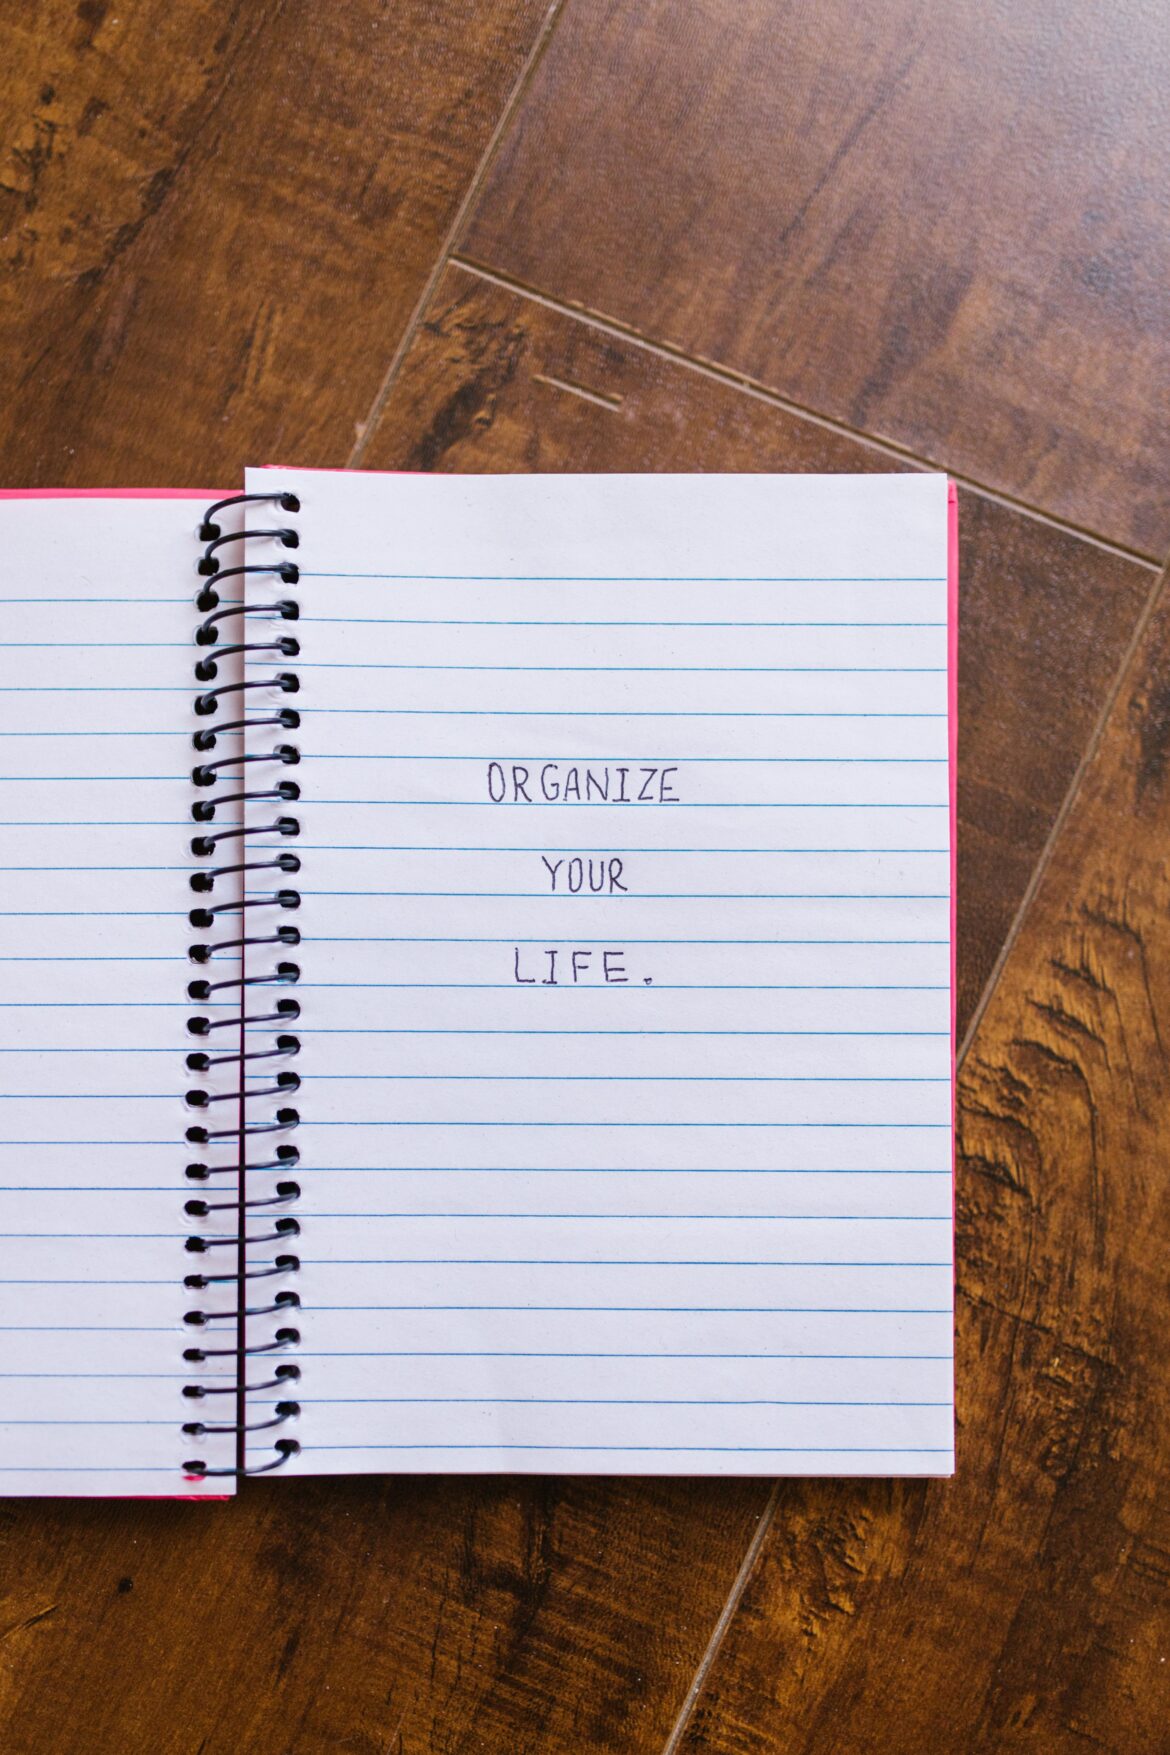 ORGANIZE
YOUR
LIFE.